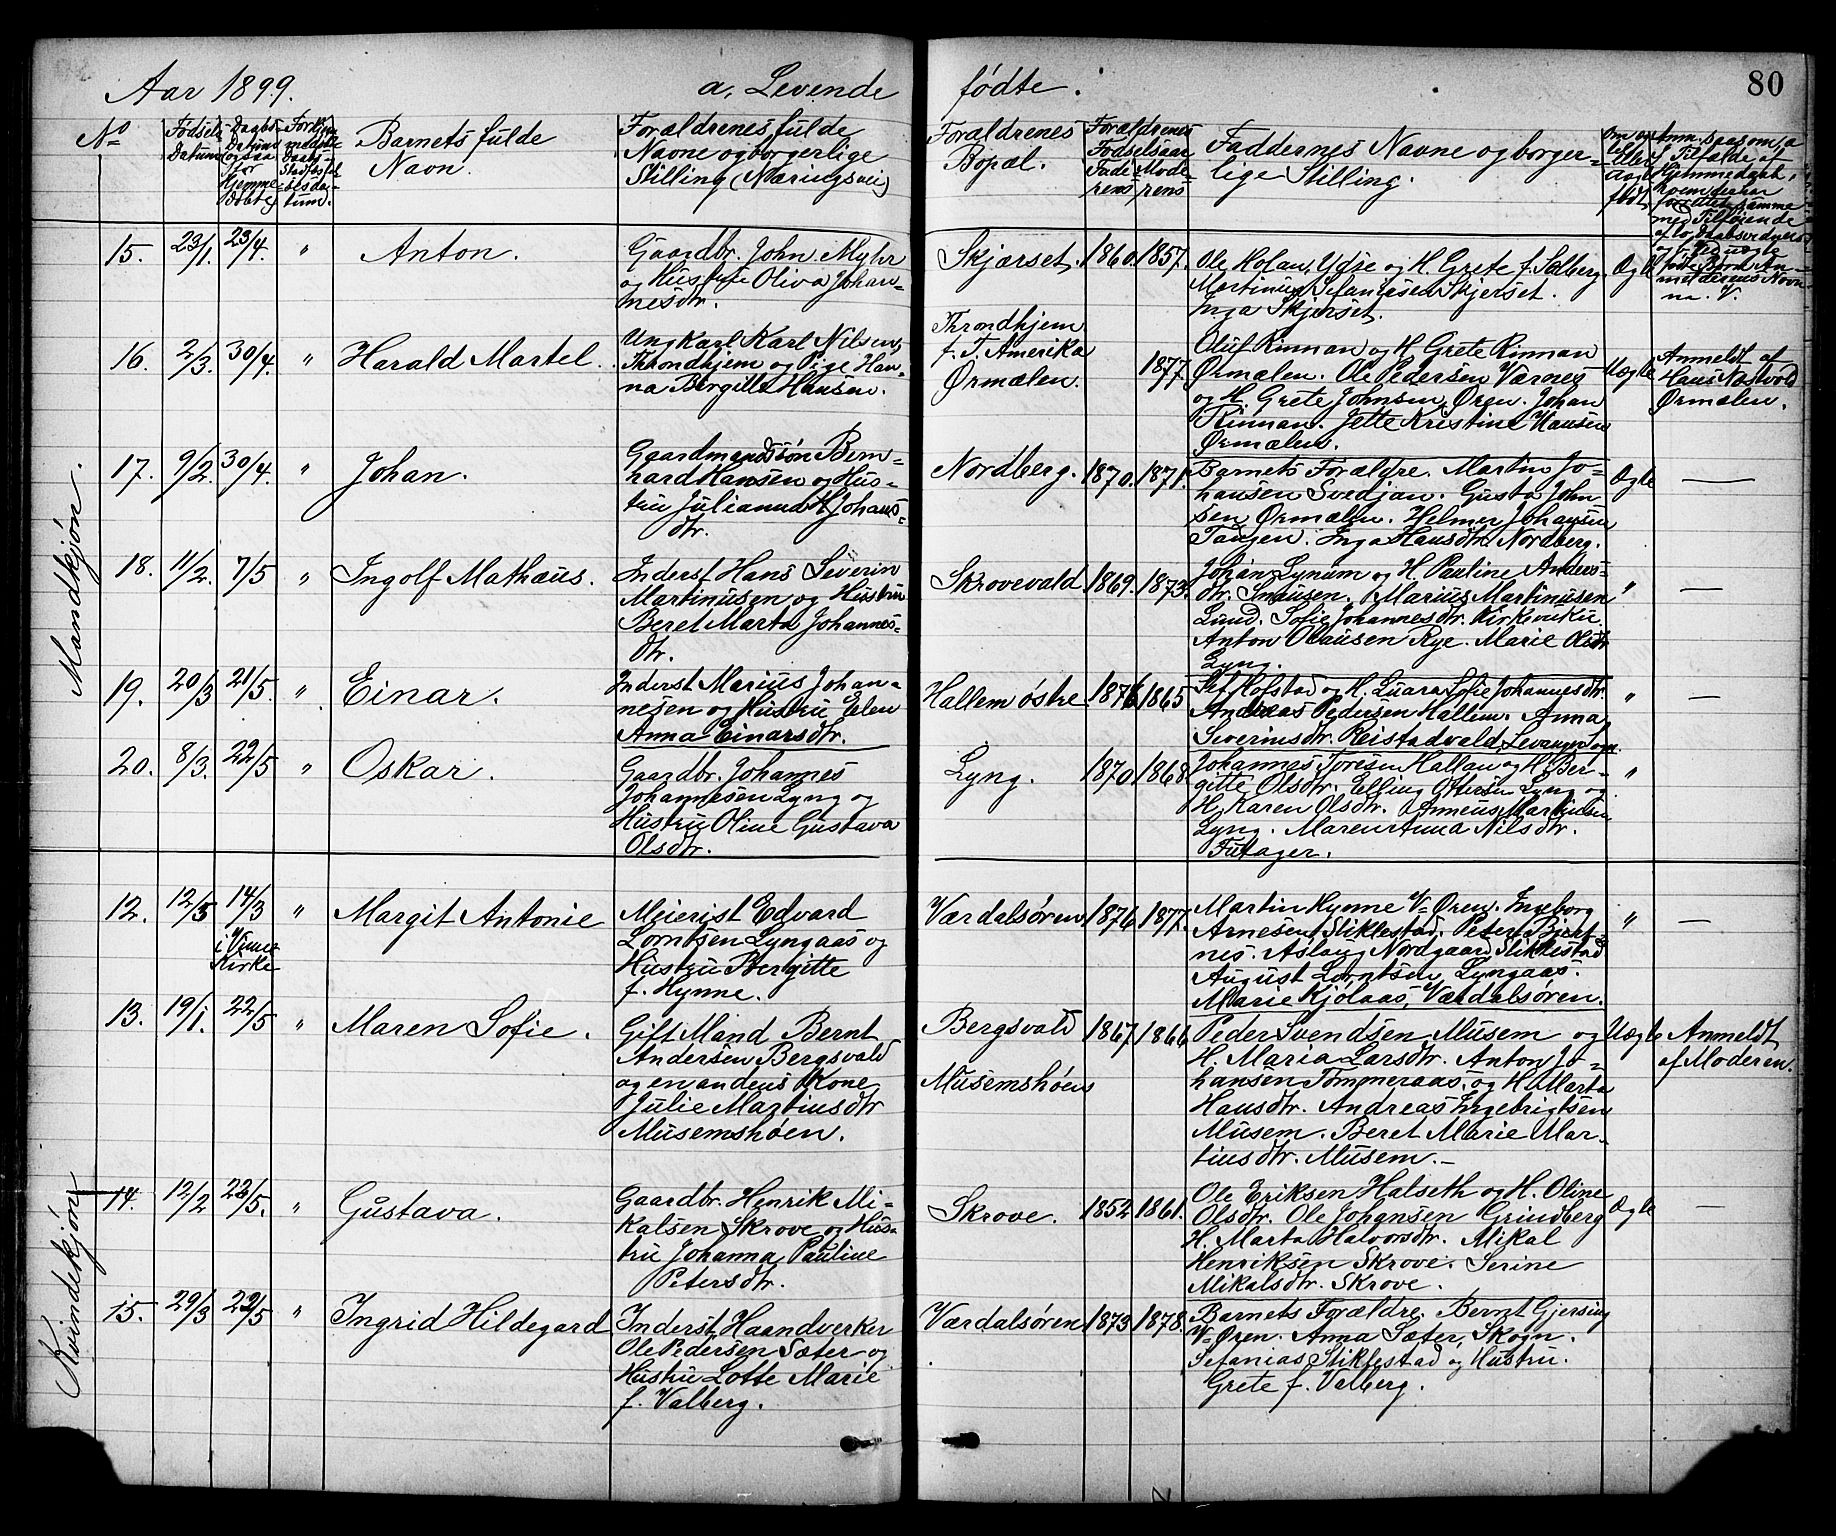 80
Aar 1899. a, Levende fødte.
No
Fødsels-
Datum
Daabs-
Datum
Hjemme-
Daabte)
Barnets fulde
Navn.
Forældrenes fulde
Navne og borgerlige
Stilling (Næringsvei)
Forældrenes
Bopæl.
Forældrenes
Fødselsaar
Fade-
rens
Mode-
rens
Faddernes Navne og borger-
lige Stilling.
Mandkjøn.
15. 23/1. 23/4. " Anton.
Gaardbr. John Myhr
og Hustru Oliva Johan-
nesdtr.
Skjærset. 1860. 1857.
Ole Holan, Ydre og H. Grete f. Solberg.
Martinus Sefaniesen Skjerset.
Inga Skjerset.
Ægte
16. 2/3. 30/4. " Harald Martel.
Ungkarl Karl Nilsen,
Throndhjem og Pige Han-
na Bergitte Hansen.
Throndhjem
f. T. Amerika
Ørmælen.
1877
Oluf Rinnan og H. Grete Rinnan
Ørmælen. Ole Pedersen Værnes
og H. Grete Johnsen, Øren. Johan
Rinnan. Jette Kristine Hansen
Ørmælen.
Uægte
Anmeldt af
Hans Nestvold
Ørmælen.
17. 9/2. 30/4. " Johan.
Gaardmandssøn Bern-
hard Hansen og Hus-
tru Julianna M. Johans-
dtr.
Nordberg. 1870. 1871.
Barnets Forældre. Martin Jo-
hansen Svedjan. Gusta John-
sen Ørmælen. Helmer Johansen
Tangen. Inga Hansdtr. Nordberg.
Ægte —
18. 11/2. 7/5 " Ingolf Mathæus.
Inderst Hans Severin
Martinusen og Hustru
Beret Marta Johannes-
dtr.
Skrovevald 1869. 1873.
Johan Lynum og H. Pauline Anders-
dtr. Snausen. Marius Martinusen
Lund. Sofie Johannesdtr. Kirk
Anton Olausen Rye. Marie Olsdtr
Lyng.
" —
19. 20/3 21/5. " Einar.
Inderst Marius Johan-
nesen og Hustru Elen
Anna Einarsdtr.
Hallem østre. 1876 1865
Hofstad og H. Laura Sofie Johannesdtr.
Andreas Pedersen Hallem. Anna
Severinsdtr. Reistadvald, Levanger Sogn.
" —
20. 8/3. 22/5 " Oskar.
Gaardbr. Johannes
Johannesen Lyng og
Hustru Oline Gustava
Olsdtr.
Lyng. 1870 1868
Johannes Toresen Hallan og H. Ber-
gitte Olsdtr. Elling Ottersen Lyng og
H. Karen Olsdtr. Anneus Martinsen
Lyng. Maren Anna Nilsdtr.
Fuager.
"
Kvindekjøn
12. 12/3 14/3 " Margit Antonie
i Vinne
Kirke
Meierist Edvard
Lorntsen Lyngaas og
Hustru Bergitte
f. Hynne.
Værdalsøren 1876 1877.
Martin Hynne V-Øren. Ingeborg
Arnesen Stiklestad. Peter Bjert-
nes. Aslaug Nordgaard Stiklestad
August Lorntsen Lyngaas.
Marie Kjølaas, Værdalsøren.
" —
13. 19/1. 22/5 " Maren Sofie.
Gift Mand Bernt
Andersen Bergsvald
og en andens Kone
Julie Martinsdtr
Musemshøen.
Bergsvald
Musemshøen
1867 1866
Peder Svendsen Musem og
H. Maria Larsdtr. Anton Jo-
hansen Tømmeraas. og H. Marta
Hansdtr. Andreas Ingebrigtsen
Musem. Beret Marie Mar-
tinsdtr. Musem. —
Uægte
Anmeldt
af Moderen.
14. 12/2 22/5. " Gustava.
Gaardbr. Henrik Mi-
kalsen Skrove og Hus-
tru Johanna Pauline
Petersdtr.
Skrove. 1852 1861.
Ole Eriksen Halseth og H. Oline
Olsdtr. Ole Johansen Grindberg
H. Marta Halvorsdtr. Mikal
Henriksen Skrove. Serine
Mikalsdtr. Skrove.
Ægte —
15. 29/3 22/5 " Ingrid Hildegard
Inderst, Haandverker
Ole Pedersen Sæter og
Hustru Lotte Marie
f. Valberg.
Værdalsøren 1873 1878.
Barnets Forældre, Bernt Gjersing
V-Øren. Anna Sæter, Skogn.
Sefanias Stiklestad og Hustru.
Grete f. Valberg.